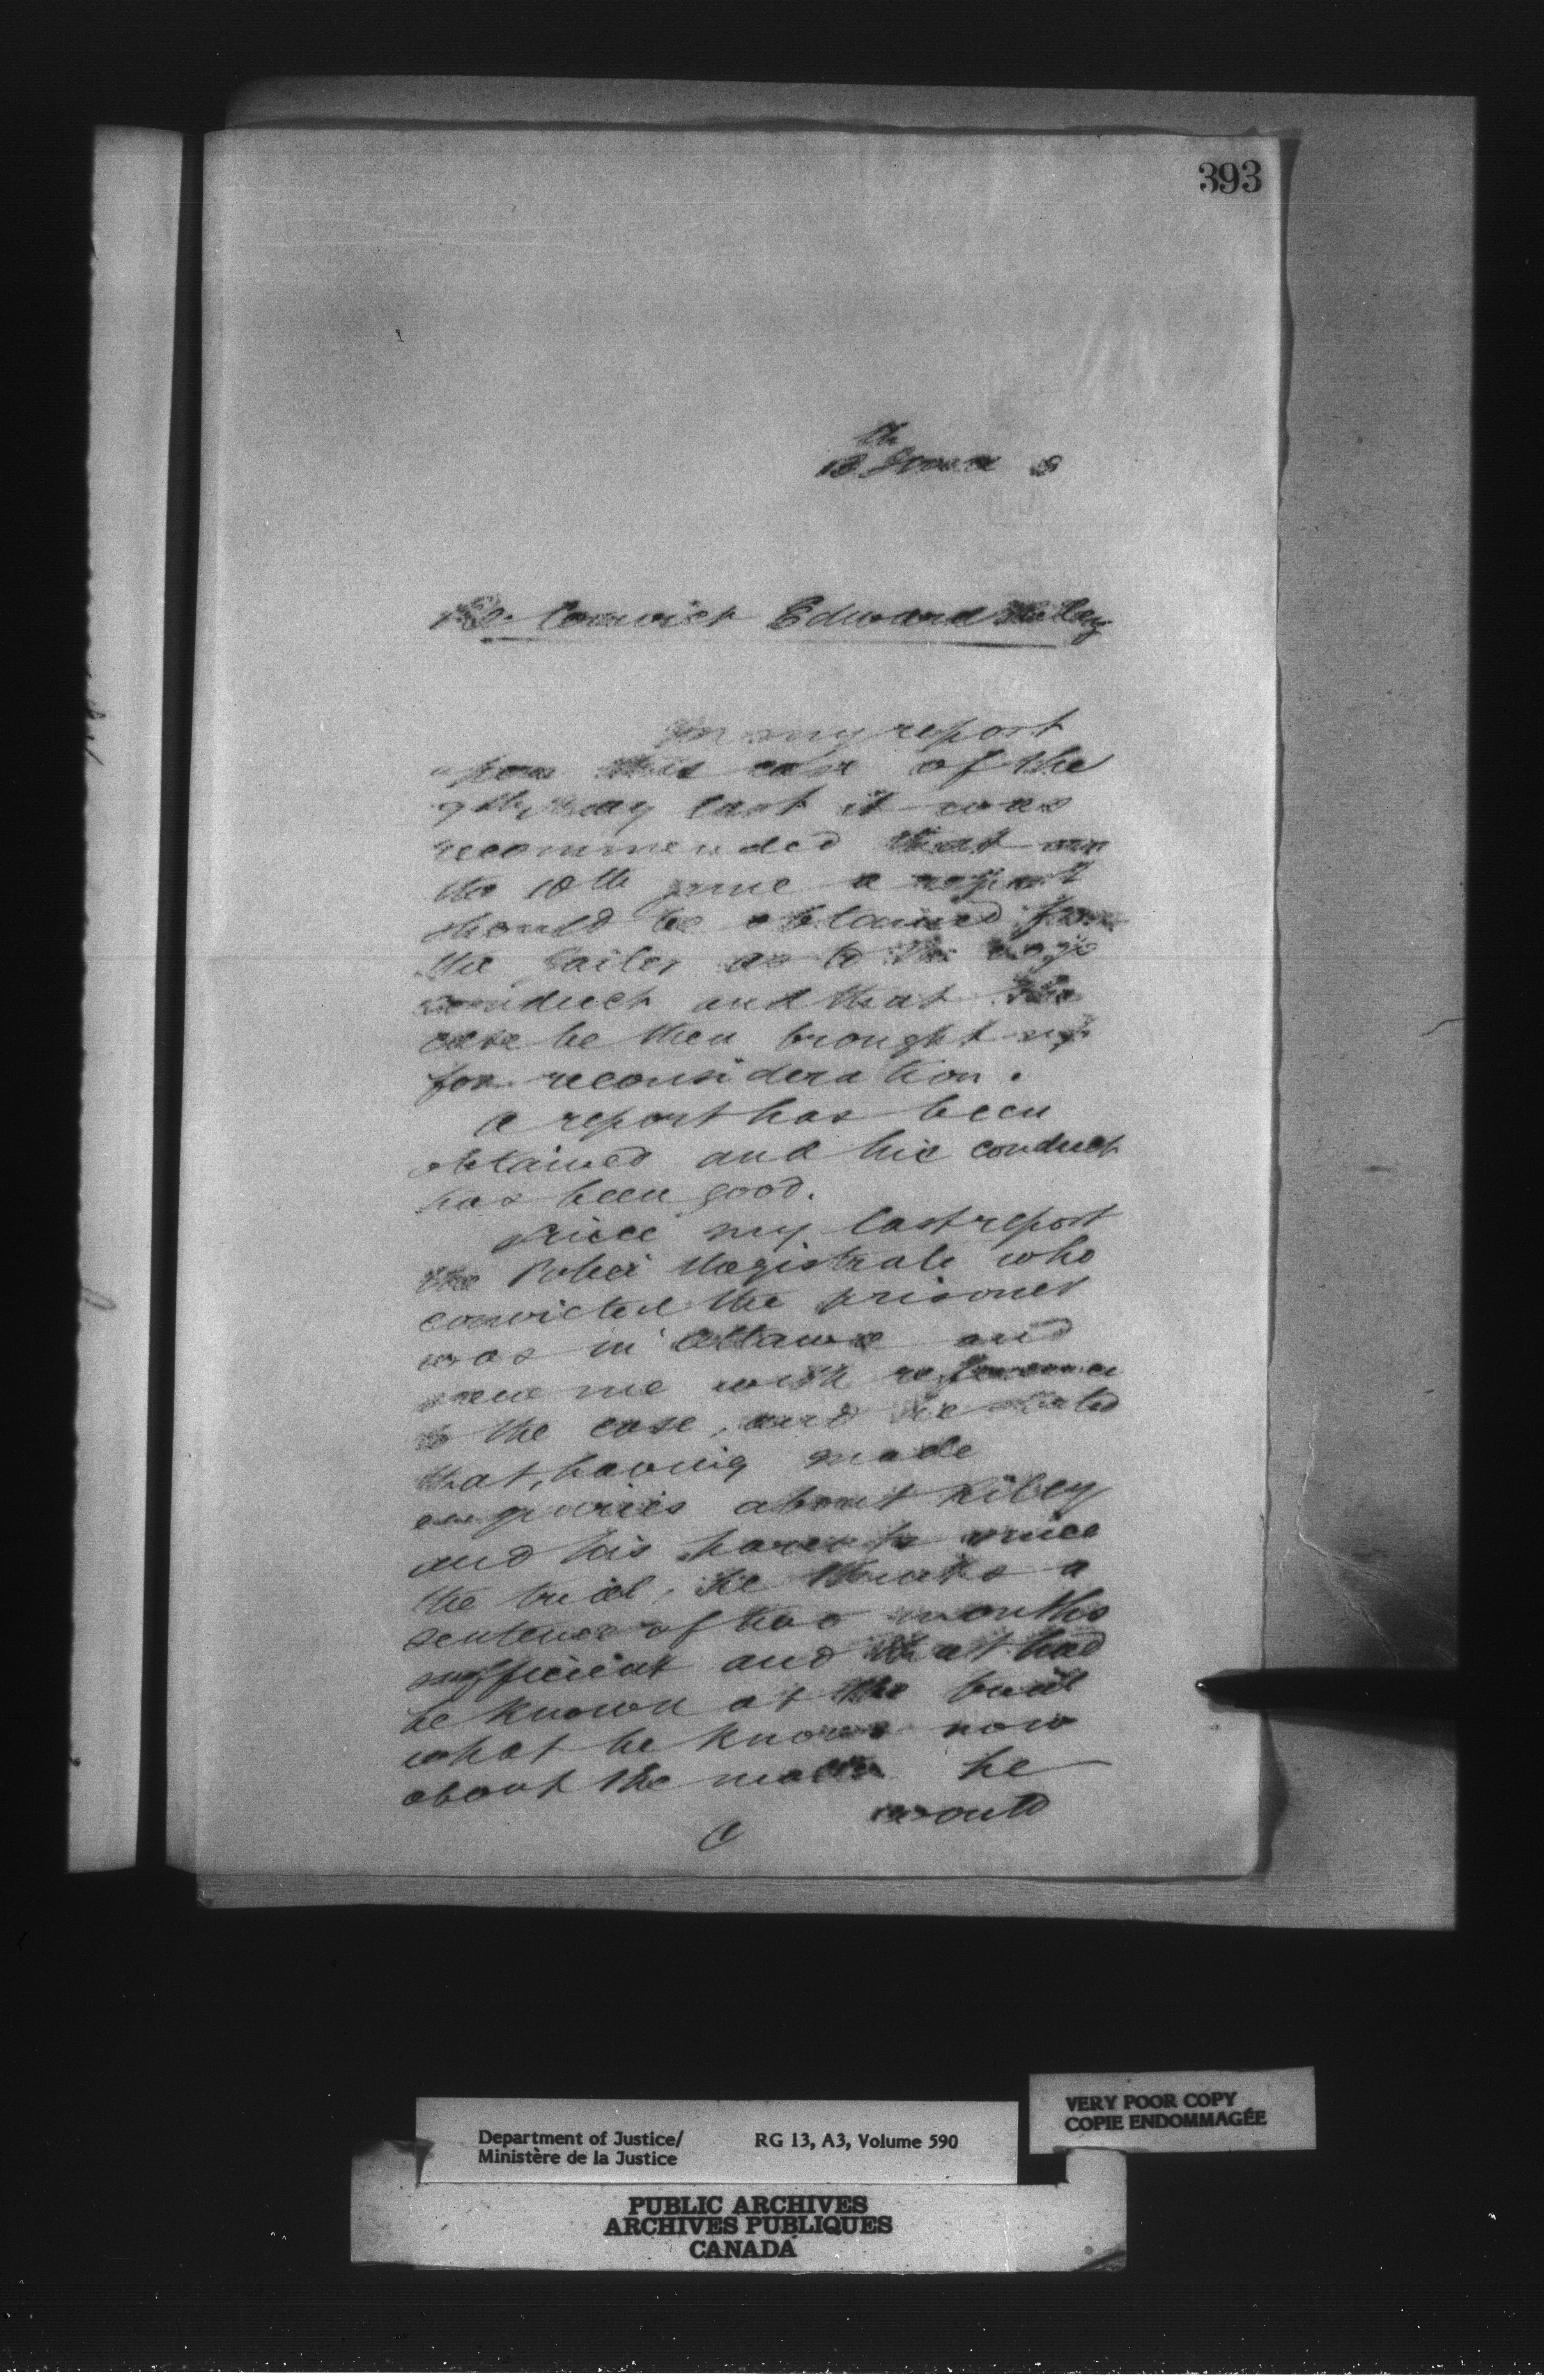 393
13th June 8
Re. Convict Edward Riley
In my report
upon this case of the
9th May last it was
recommended that on
the 10th June a report
should be obtained from
the Gailer as to the boys
conduct and that the
case be then brought up
for reconsideration.
A report has been
obtained and his conduct
has been good.
Since my last report
the Police Magistrate who
convicted the prisoner
was in Ottawa and
saw me with reference
to the case, and he stated
that, having made
enquiries about Riley
and his parents since
the trial, he thinks a
sentence of two months
sufficient and that had
he known at the trial
what he knows now
about the matter he
would
Department of Justice/
Ministère de la Justice
RG 13, A3, Volume 590
VERY POOR COPY
COPIE ENDOMMAGÉE
PUBLIC ARCHIVES
ARCHIVES PUBLIQUES
CANADA